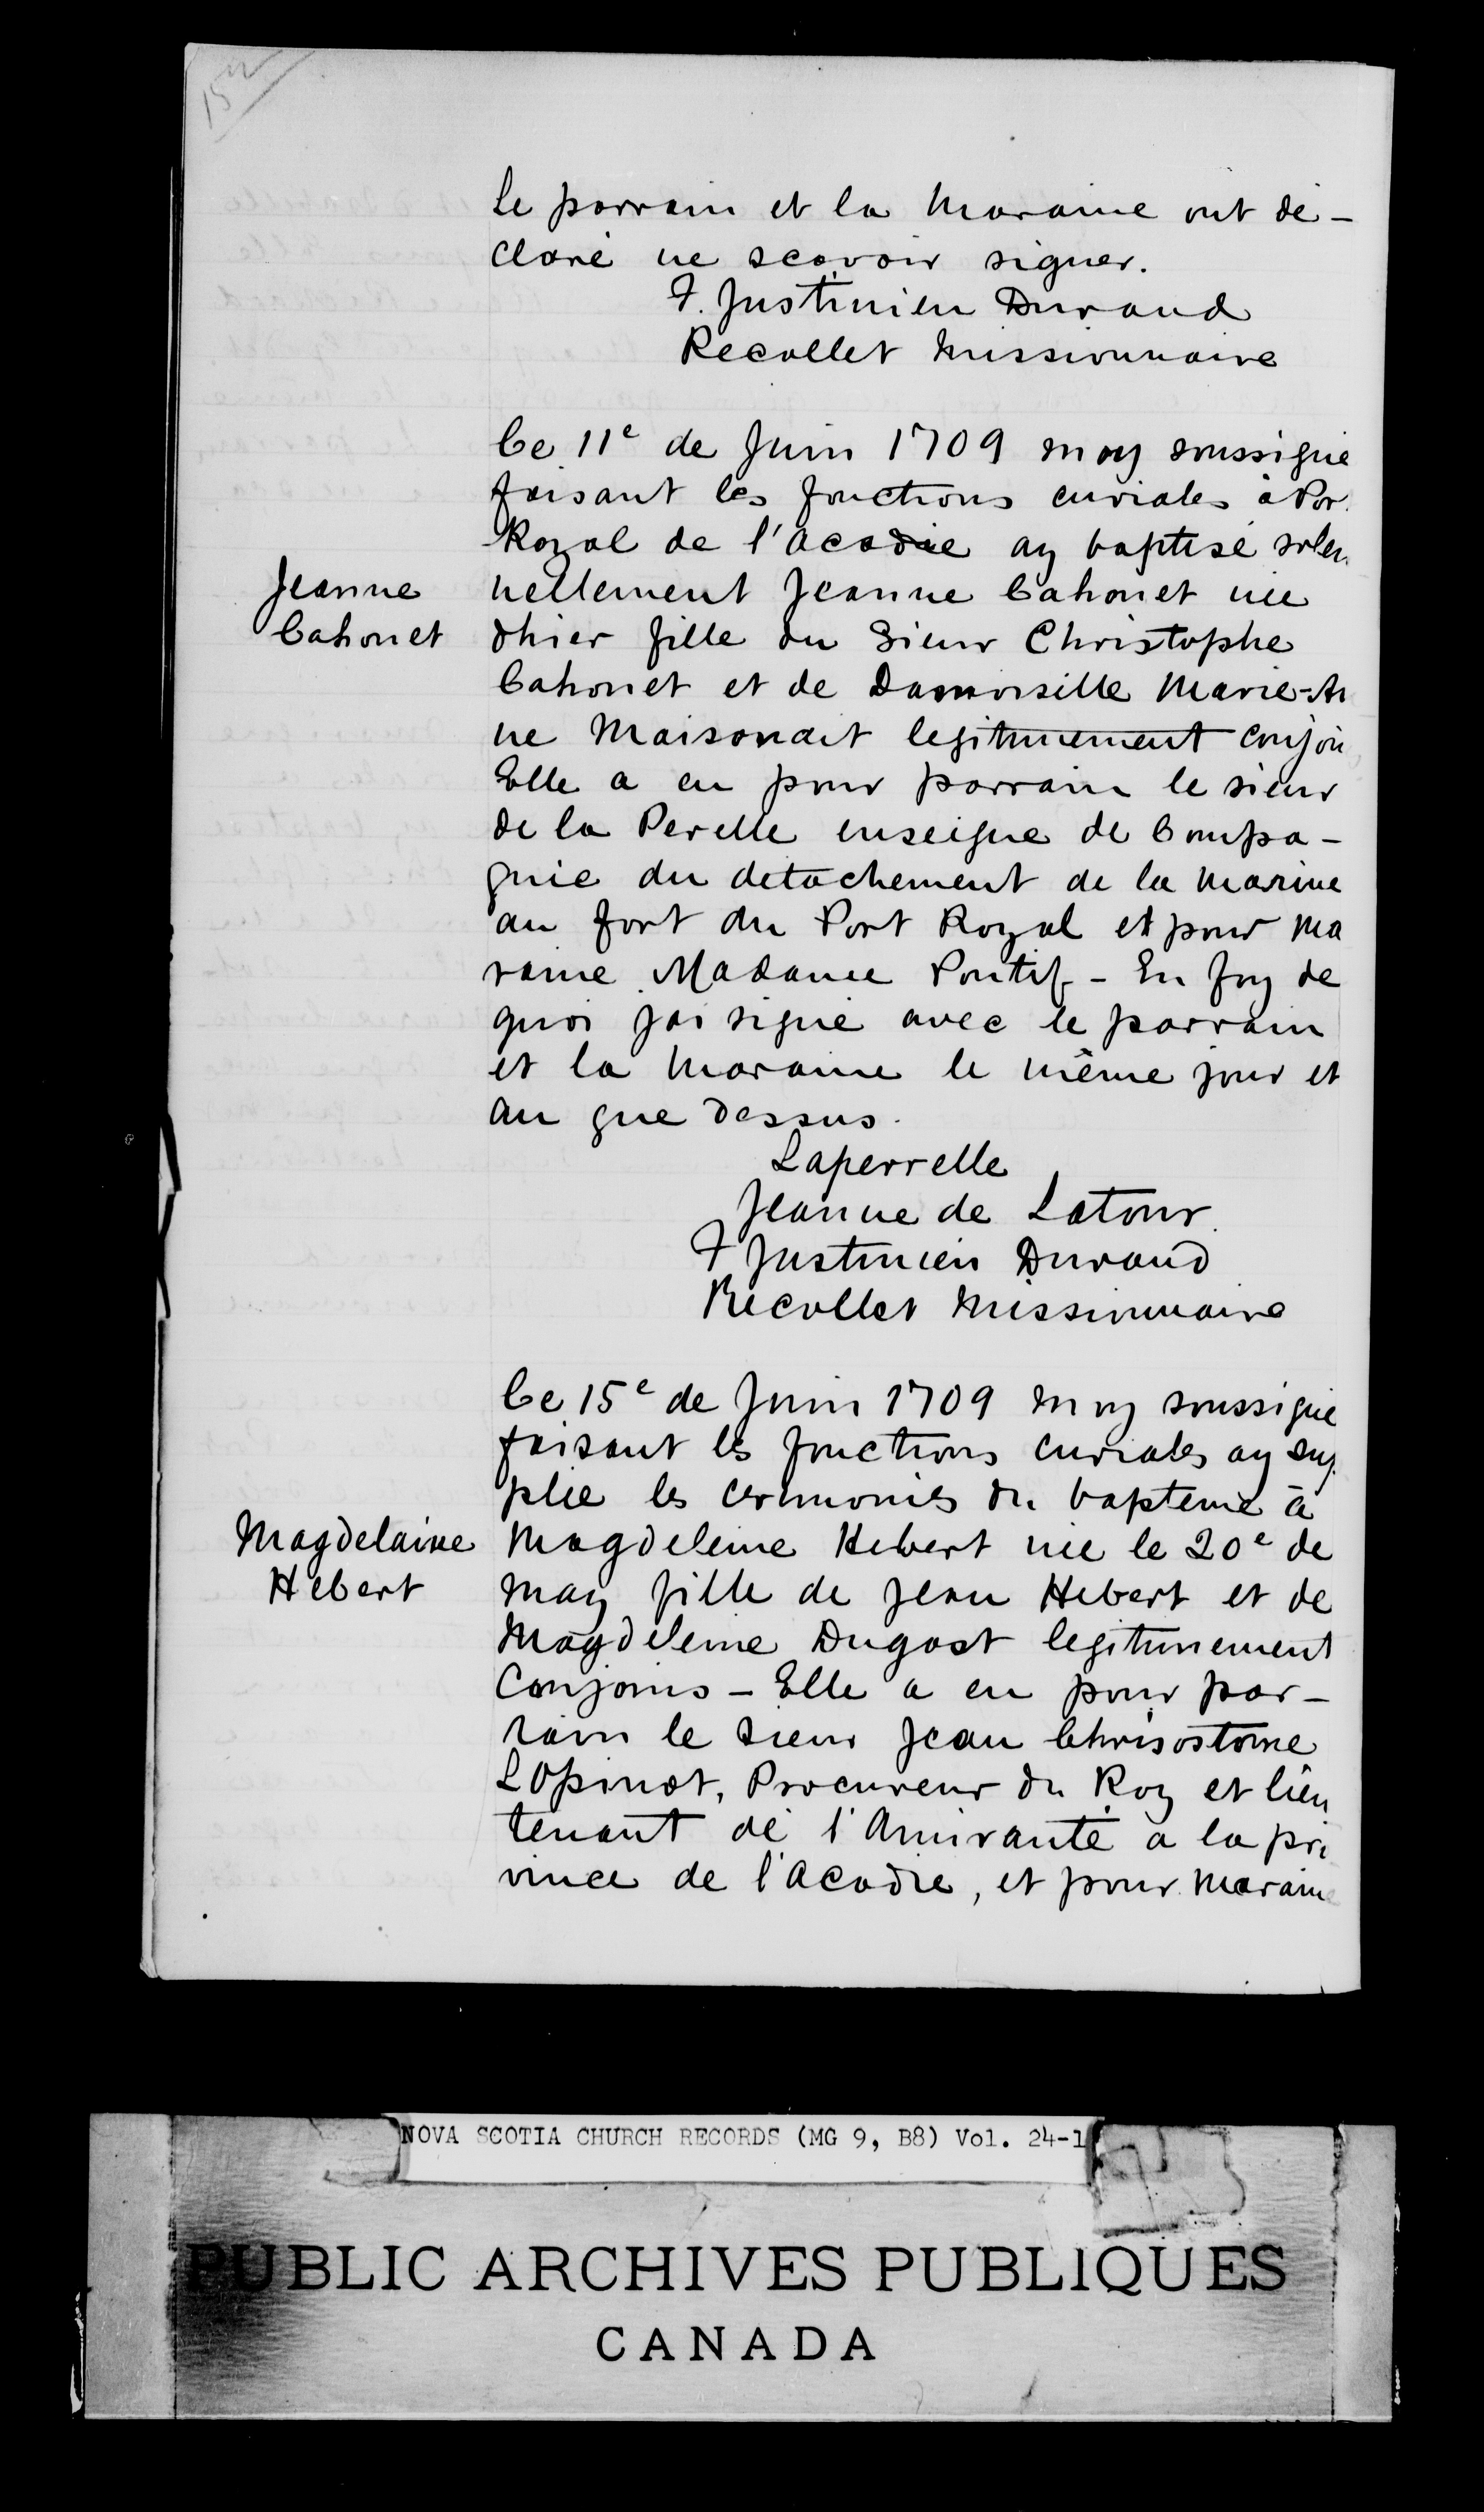 15
Le parrain et la Maraine ont dé-
claré ne scavoir signer.
F. Justinien Durand
Recollet Missionnaire
Ce 11e de Juin 1709 moy soussigné
faisant les fonctions curiales à Por
Royal de l'Acadie ay baptisé solen
Jeanne
Cahouet
nellement Jeanne Cahouet née
dhier fille du Sieur Christophe
Cahouet et de Damoiselle Marie-An
ne Maisonat legitimement conjoin
Elle a eu pour parrain le sieur
de la Perelle enseigne de Compa-
gnie du detachement de la Marine
au fort du Port Royal et pour Ma
raine Madame Pontif - En foy de
quoi jai signé avec le parrain
et la Maraine le même jour et
an que dessus.
Laperrelle
Jeanne de Latour.
F Justinien Durand
Récollet Missionnaire
Ce 15e de Juin 1709 moy soussigné
faisant les fonctions curiales ay sup
plié les ceremonies du bapteme à
Magdelaine
Hebert
Magdeleine Hebert née le 20e de
May fille de Jean Hebert et de
Magdeleine Dugast legitimement
Conjoins - Elle a eu pour par-
rain le sieur Jean Chrisostome
LOpinot, Procureur du Roy et lieu
tenant de l'Amirauté a la pro
vince de l'Acadie, et pour Maraine
NOVA SCOTIA CHURCH RECORDS (MG 9, B8) Vol. 24-1
PUBLIC ARCHIVES PUBLIQUES
CANADA